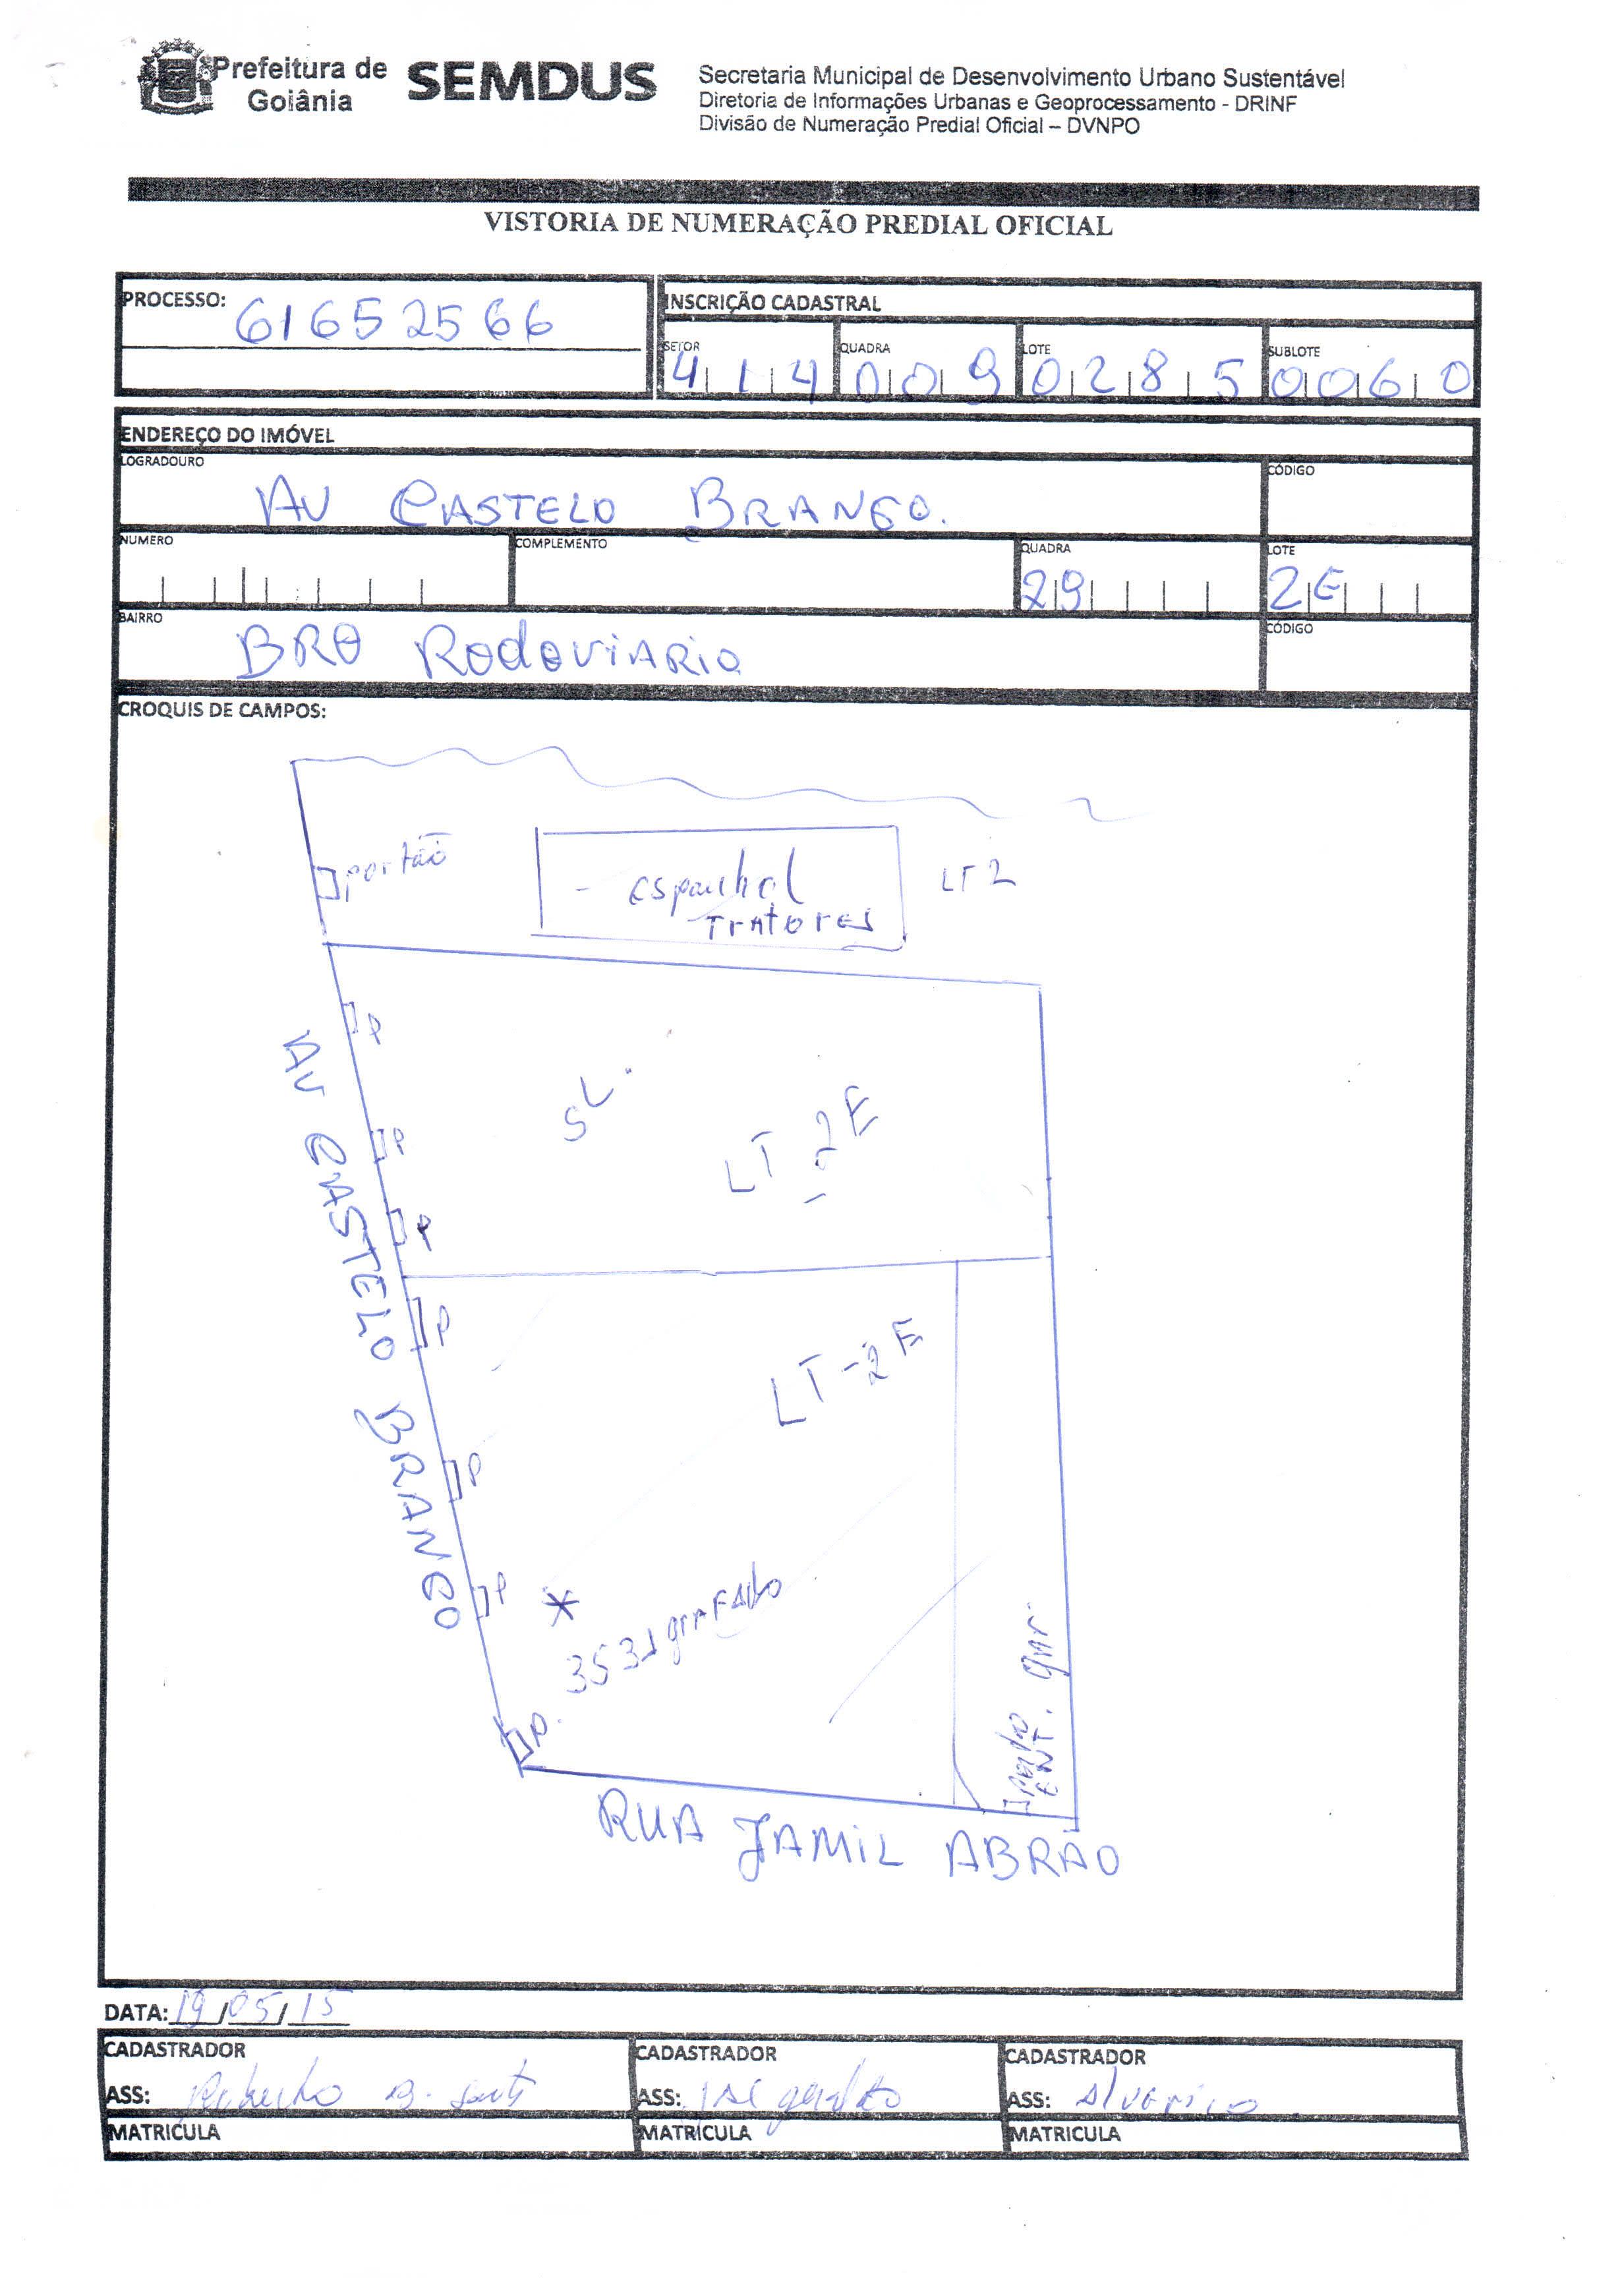 Prefeitura de Goiânia
SEMDUS
Secretaria Municipal de Desenvolvimento Urbano Sustentável
Diretoria de Informações Urbanas e Geoprocessamento - DRINF
Divisão de Numeração Predial Oficial – DVNPO
VISTORIA DE NUMERAÇÃO PREDIAL OFICIAL
PROCESSO: 61652566
INSCRIÇÃO CADASTRAL
SETOR 414 QUADRA 009 LOTE 0285 SUBLOTE 0060
ENDEREÇO DO IMÓVEL
LOGRADOURO CÓDIGO
AV CASTELO BRANCO.
NUMERO COMPLEMENTO QUADRA LOTE
29 2E
BAIRRO CÓDIGO
BRO RodoviARio
CROQUIS DE CAMPOS:
portão
- espanhol
TrAtores
LT 2
P
SL.
LT 2E
P
P
AV CASTELO BRANCO
P
LT-2E
P
P
*
3531 grafado
P.
portão
ENT.
RUA JAMIL ABRÃO
DATA: 19/05/15
CADASTRADOR CADASTRADOR CADASTRADOR
ASS: Roberto B. ASS: geraldo ASS:
MATRICULA MATRÍCULA MATRICULA